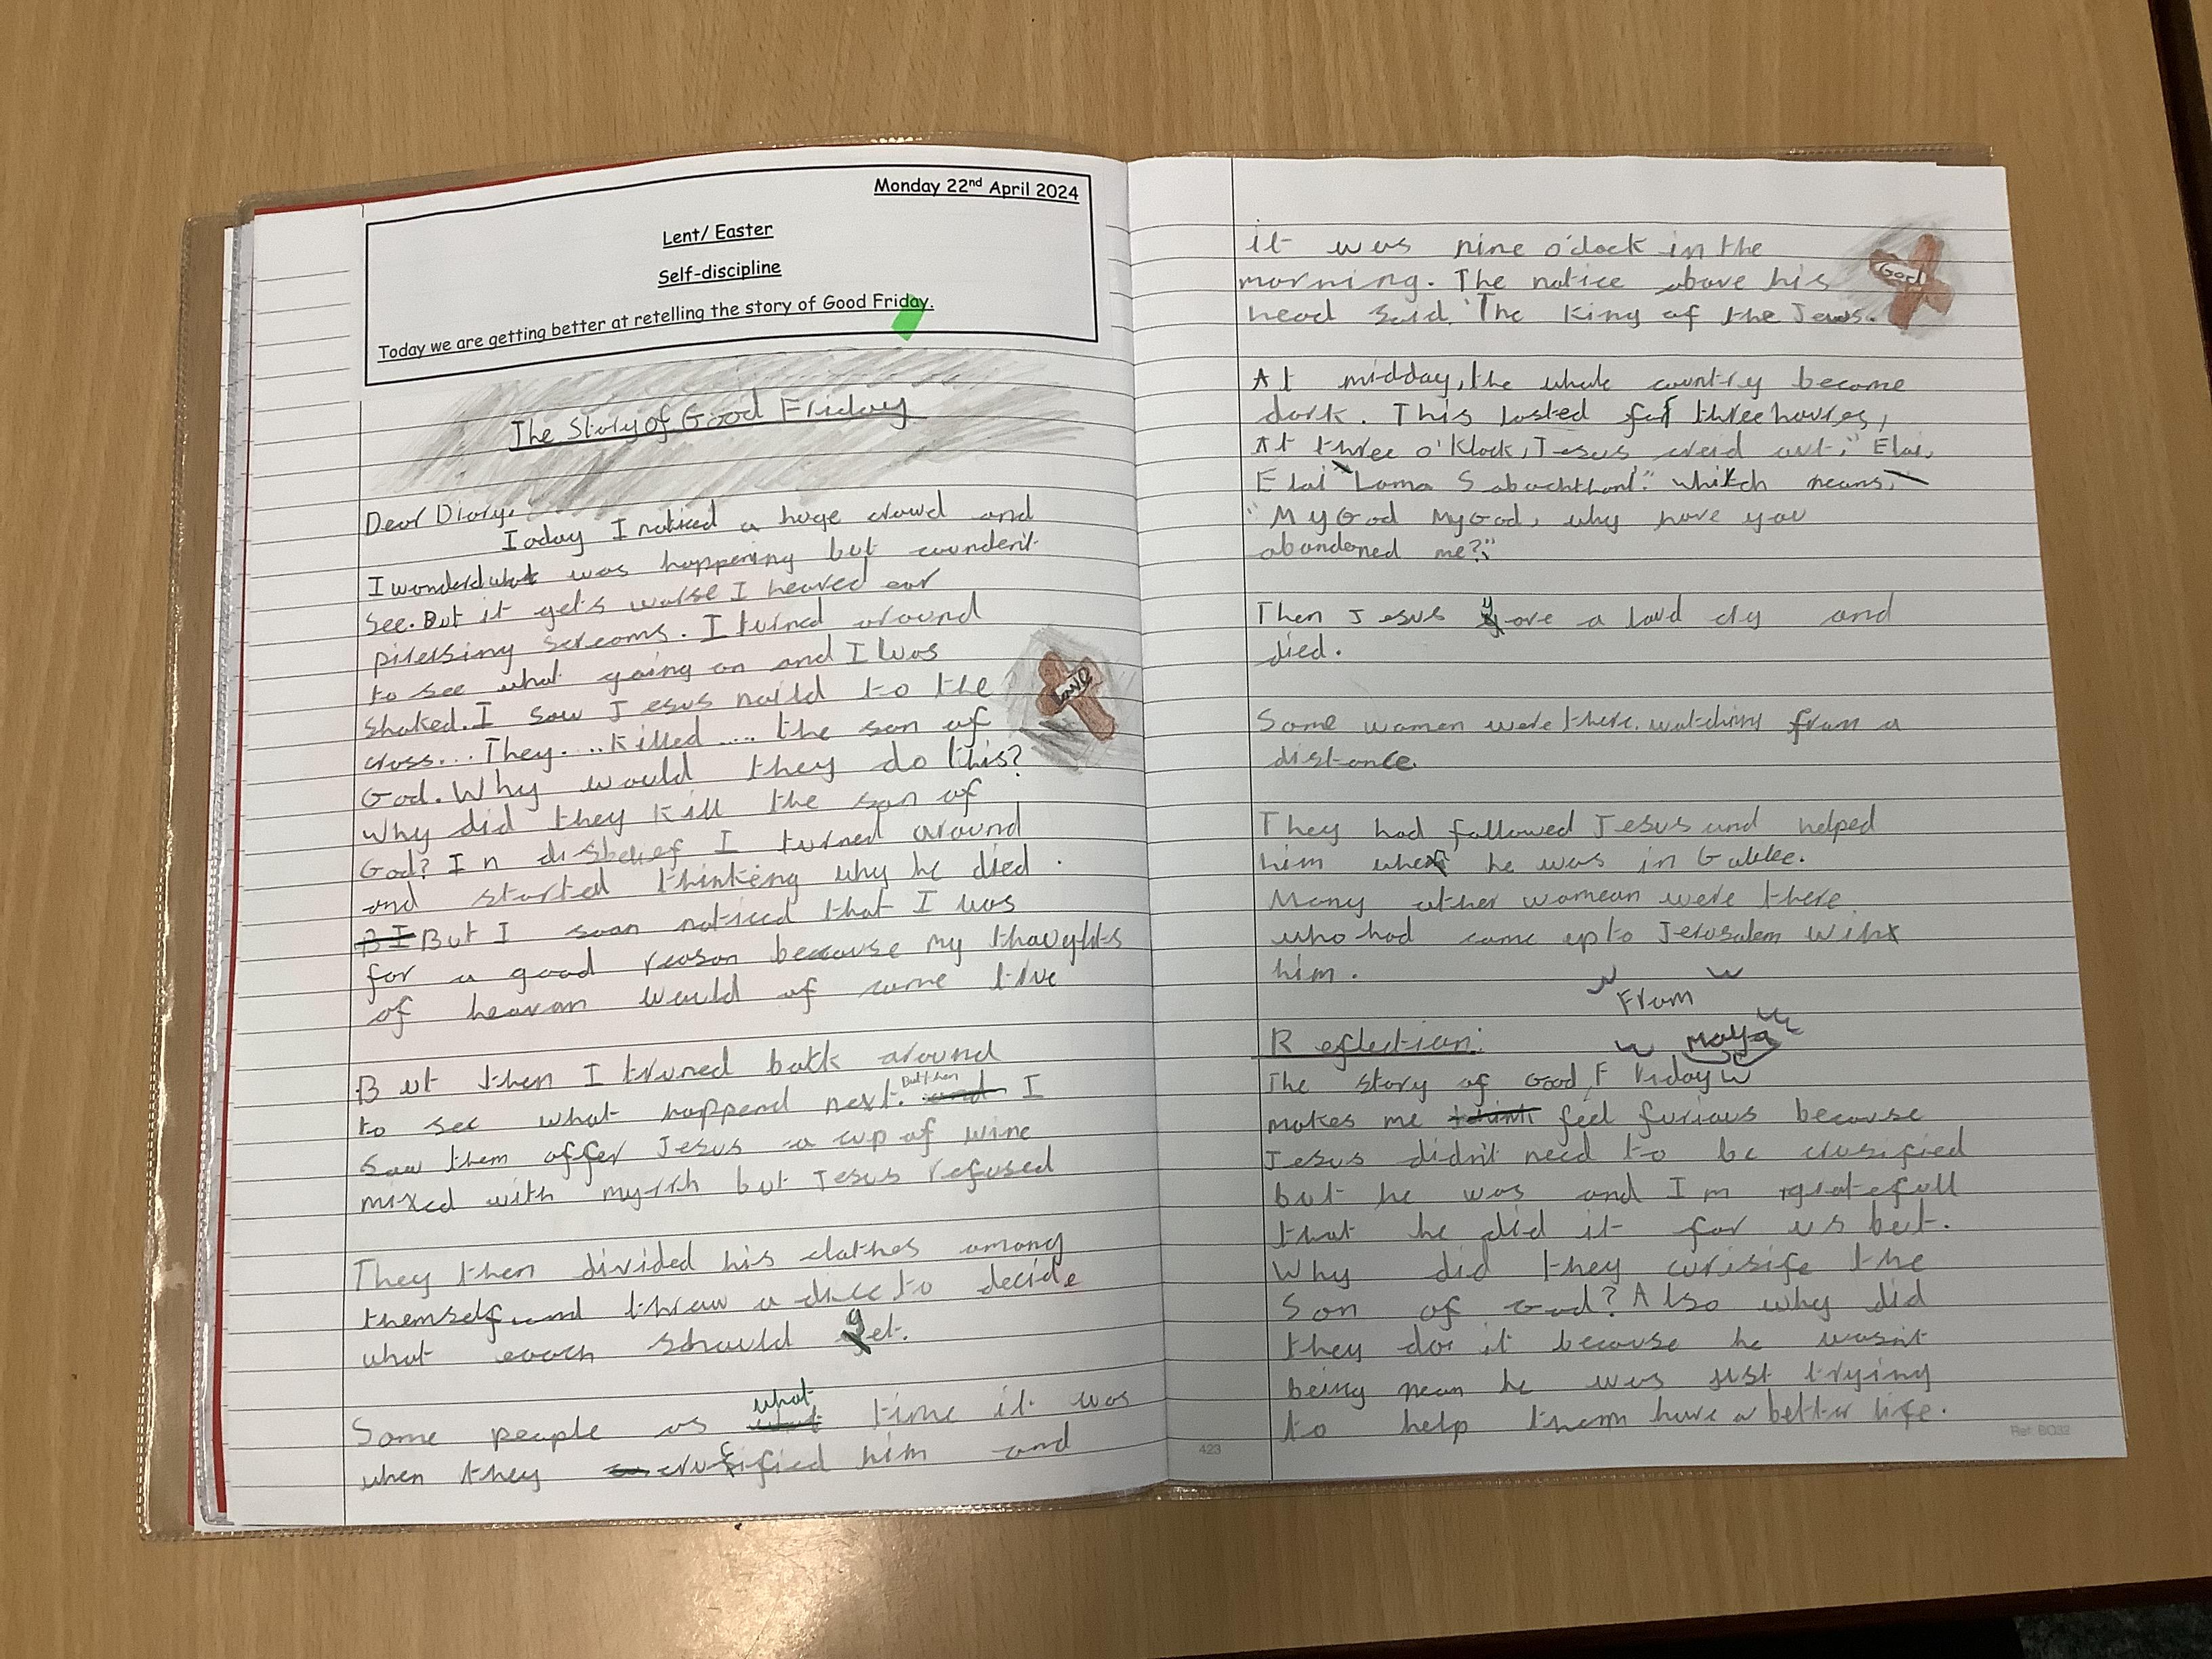 Monday 22nd April 2024
Lent/ Easter
Self-discipline
Today we are getting better at retelling the story of Good Friday.
The Story of Good Friday
Dear Diary,
Today I noticed a huge crowd and
I wonderd what was happening but coundent
see. But it gets worse I heared ear
piersing screams. I turned around
to see what going on and I was
shaked. I saw Jesus naild to the
cross... They.... killed..... the son of
God. Why would they do this?
Why did they kill the son of
God? In disbelief I turned around
and started thinking why he died.
B I But I soon noticed that I was
for a good reason because my thoughts
of heavan would of came true
But then I truned back around
to see what happend next. But then and I
saw them offer Jesus a cup of wine
mixed with myrrh but Jesus refused
They then divided his clothes among
themself and threw a dice to decide
what each should get.
Some people as what time it was
when they crucified him and
it was nine o'clock in the
morning. The notice above his
head said. 'The King of the Jews.
God
Love
At midday, the whole country became
dark. This lasted for three houres,
At three o'Klock, Jesus creid out, "Elai,
Elai Lama Sabachthani." which means,
"My God My God, why have you
abandoned me?"
Then Jesus gave a loud cry and
died.
Some women were there. watching from a
distance.
They had followed Jesus and helped
him when he was in Galilee.
Many other womean were there
who had came up to Jerusalem with
him.
From
Maya
Reflection:
The story of Good Friday
makes me think feel furious because
Jesus didn't need to be crusified
but he was and I'm gratefull
that he did it for us but.
Why did they curisife the
Son of God? Also why did
they do it because he wasn't
being mean he was just trying
to help them have a better life.
423
Ref: BO32